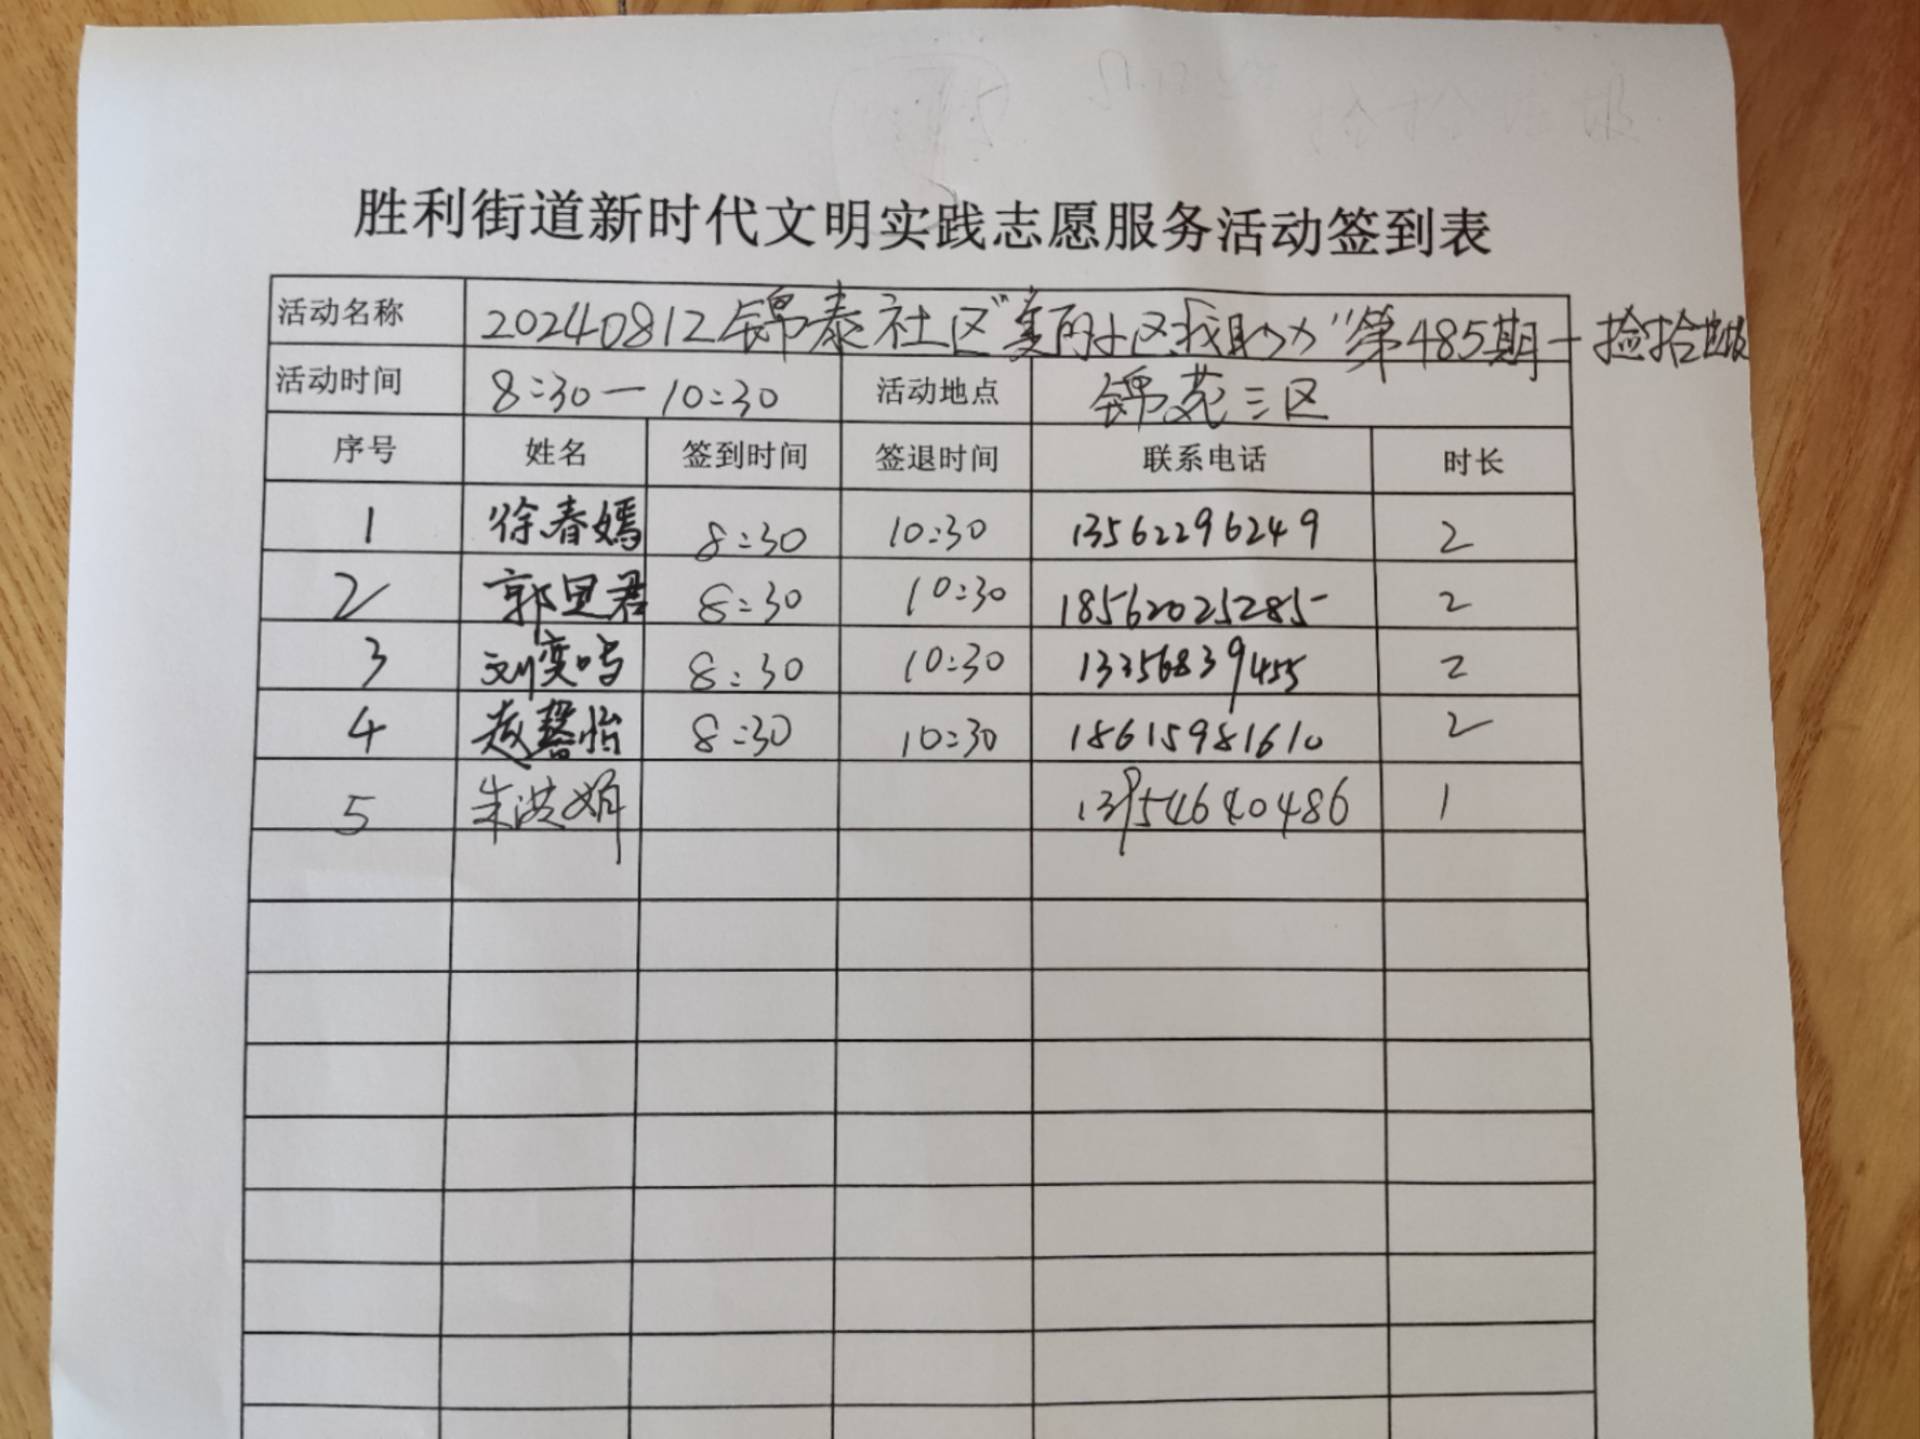 胜利街道新时代文明实践志愿服务活动签到表
活动名称 20240812锦泰社区"美丽小区我助力"第485期—捡拾垃圾
活动时间 8:30—10:30 活动地点 锦苑三区
序号 姓名 签到时间 签退时间 联系电话 时长
1 徐春嫣 8:30 10:30 13562296249 2
2 郭里君 8:30 10:30 18562025285 2
3 刘奕鸣 8:30 10:30 13356839455 2
4 赵馨怡 8:30 10:30 18615981610 2
5 朱洪娟 13954640486 1